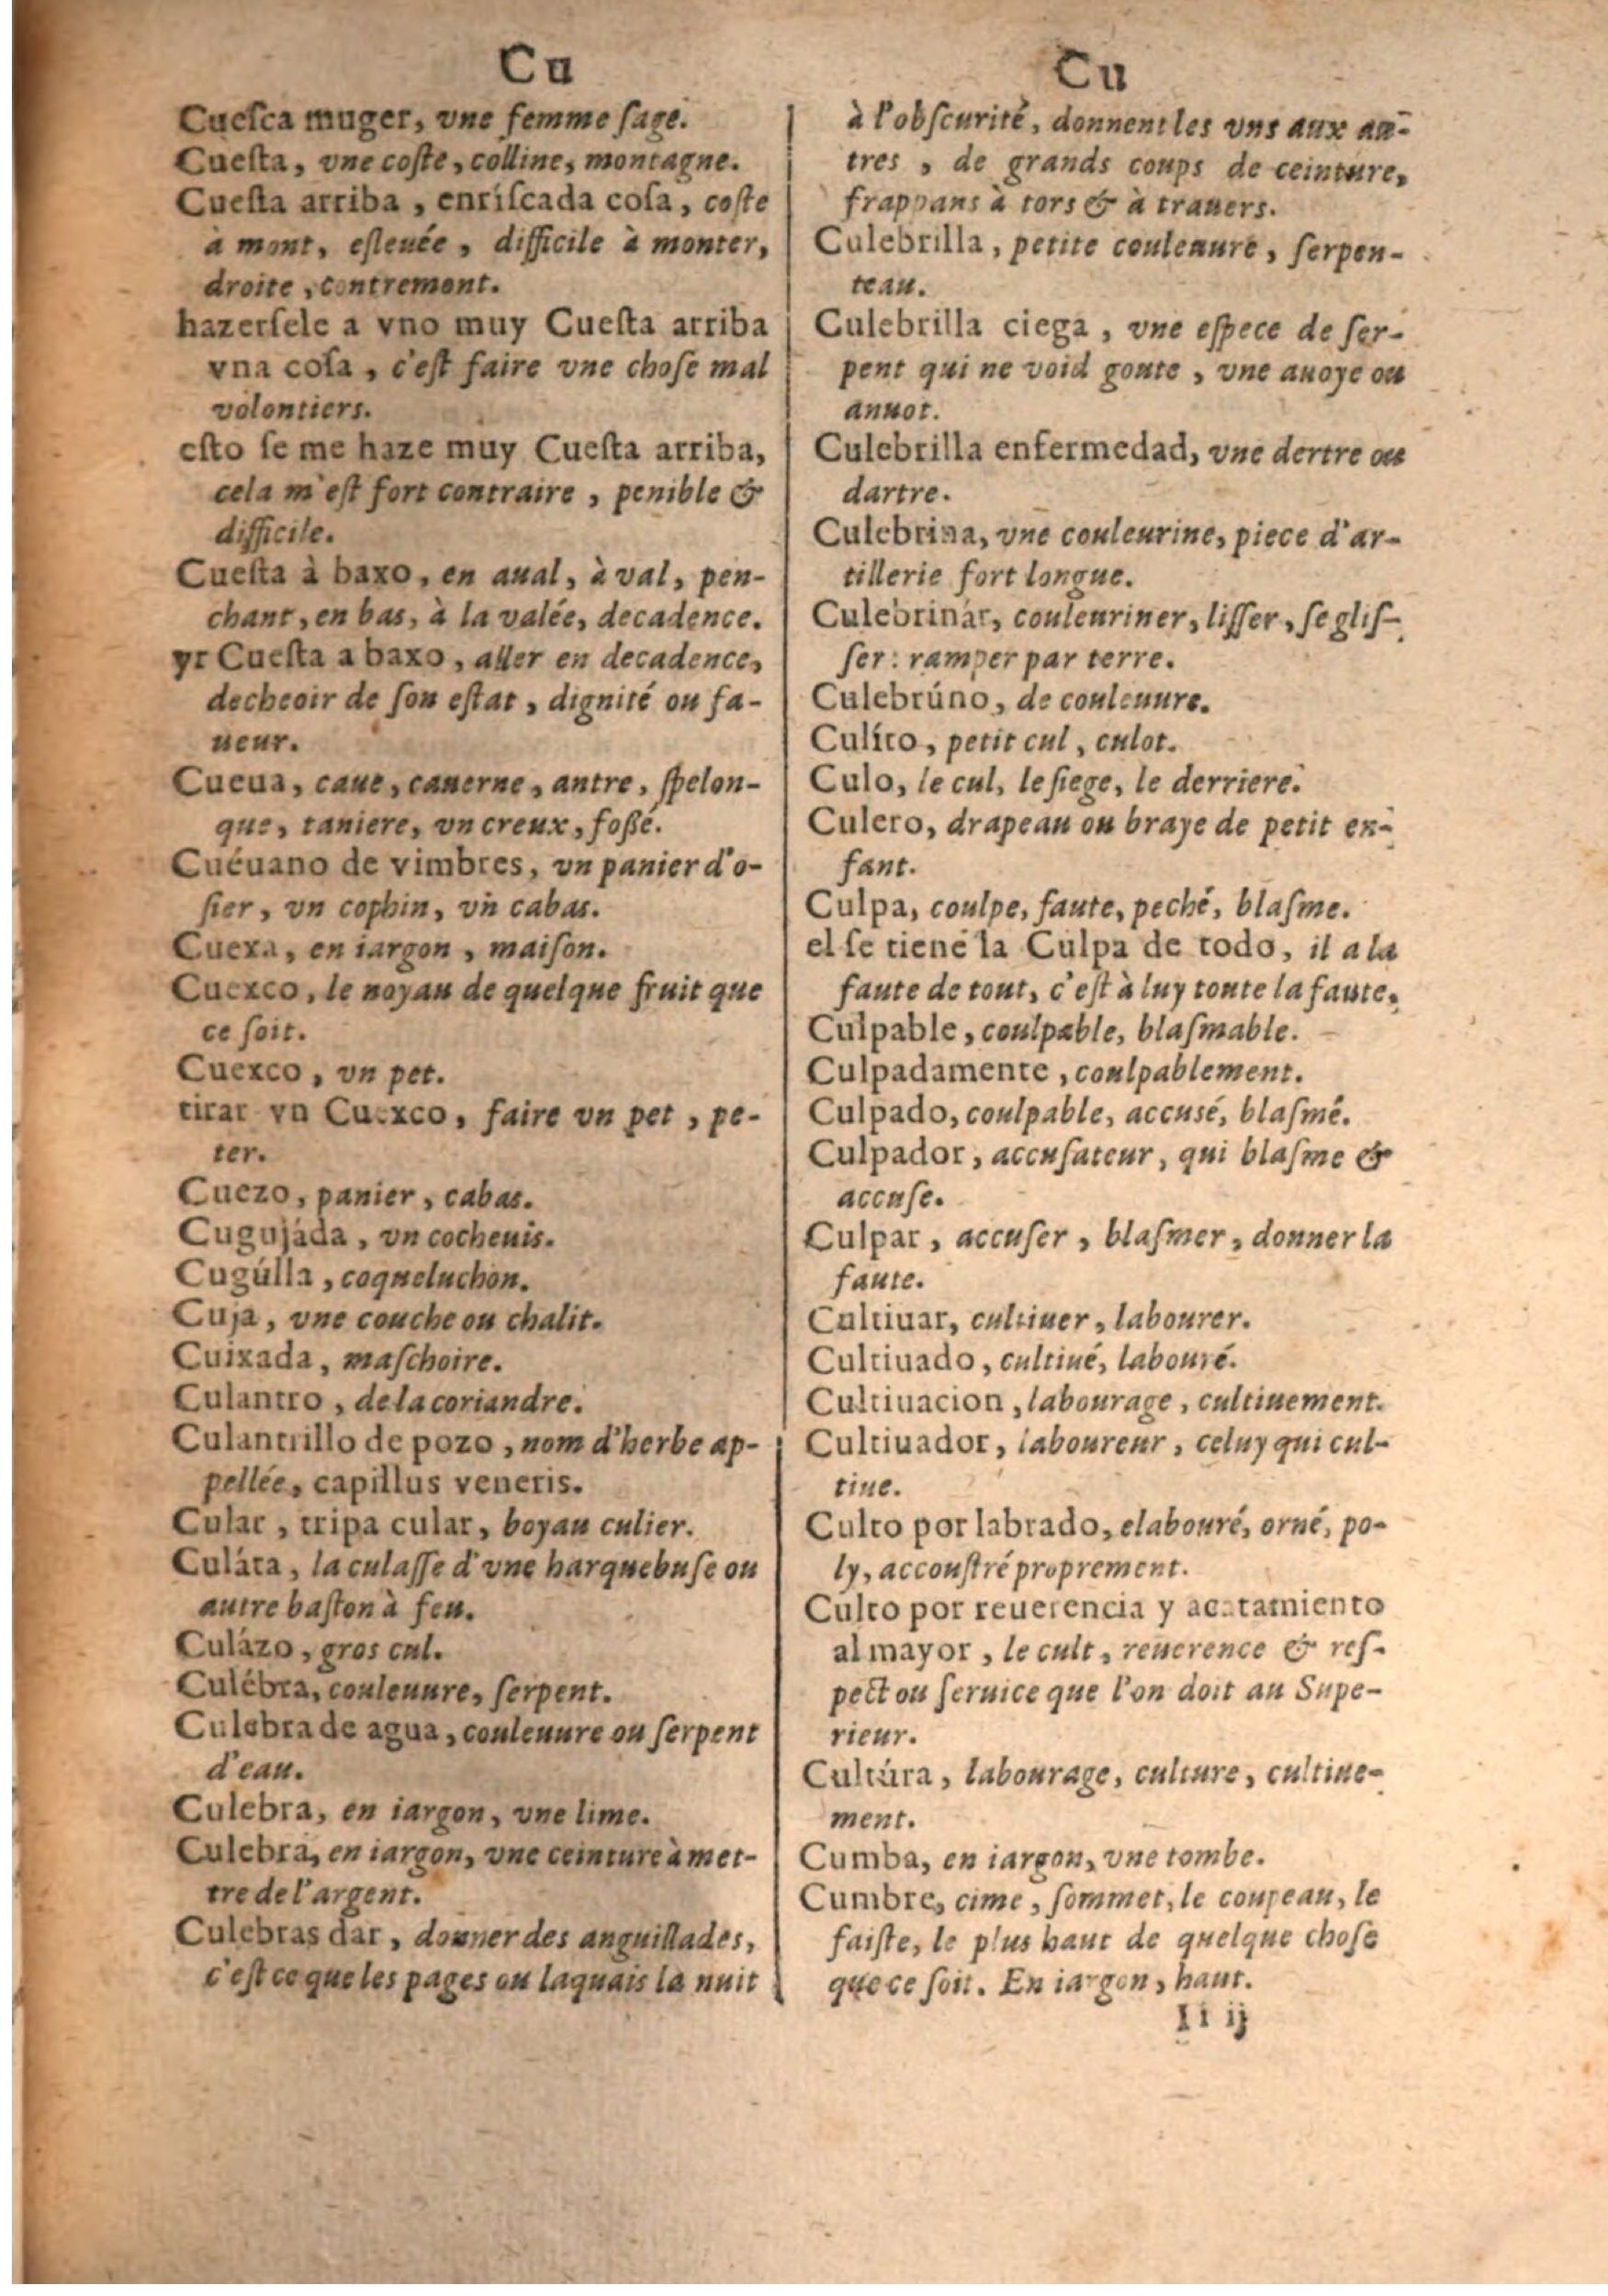 Cu
Cueſca muger, vne femme ſage.
Cueſta, vne coſte, colline, montagne.
Cueſta arriba, enriſcada coſa, coſte
à mont, eſleuée, difficile à monter,
droite, contremont.
hazerſele a vno muy Cueſta arriba
vna coſa, c'eſt faire vne choſe mal
volontiers.
eſto ſe me haze muy Cueſta arriba,
cela m'eſt fort contraire, penible &
difficile.
Cueſta à baxo, en aual, à val, pen-
chant, en bas, à la valée, decadence.
yr Cueſta a baxo, aller en decadence,
decheoir de ſon eſtat, dignité ou fa-
ueur.
Cueua, caue, cauerne, antre, ſpelon-
que, taniere, vn creux, foßé.
Cuéuano de vimbres, vn panier d'o-
ſier, vn cophin, vn cabas.
Cuexa, en iargon, maiſon.
Cuexco, le noyau de quelque fruit que
ce ſoit.
Cuexco, vn pet.
tirar vn Cuexco, faire vn pet, pe-
ter.
Cuezo, panier, cabas.
Cugujáda, vn cocheuis.
Cugúlla, coqueluchon.
Cuja, vne couche ou chalit.
Cuixada, maſchoire.
Culantro, de la coriandre.
Culantrillo de pozo, nom d'herbe ap-
pellée, capillus veneris.
Cular, tripa cular, boyau culier.
Culáta, la culaſſe d'vne harquebuſe ou
autre baſton à feu.
Culázo, gros cul.
Culébra, couleuure, ſerpent.
Culebra de agua, couleuure ou ſerpent
d'eau.
Culebra, en iargon, vne lime.
Culebra, en iargon, vne ceinture à met-
tre de l'argent.
Culebras dar, donner des anguillades,
c'eſt ce que les pages ou laquais la nuit
Cu
à l'obſcurité, donnent les vns aux au-
tres, de grands coups de ceinture,
frappans à tors & à trauers.
Culebrilla, petite couleuure, ſerpen-
teau.
Culebrilla ciega, vne eſpece de ſer-
pent qui ne void goute, vne auoye ou
annot.
Culebrilla enfermedad, vne dertre ou
dartre.
Culebrina, vne couleurine, piece d'ar-
tillerie fort longue.
Culebrinár, couleuriner, liſſer, ſe gliſ-
ſer: ramper par terre.
Culebrúno, de couleuure.
Culíto, petit cul, culot.
Culo, le cul, le ſiege, le derriere.
Culero, drapeau ou braye de petit en-
fant.
Culpa, coulpe, faute, peché, blaſme.
el ſe tiene la Culpa de todo, il a la
faute de tout, c'eſt à luy toute la faute.
Culpable, coulpable, blaſmable.
Culpadamente, coulpablement.
Culpado, coulpable, accusé, blaſmé.
Culpador, accuſateur, qui blaſme &
accuſe.
Culpar, accuſer, blaſmer, donner la
faute.
Cultiuar, cultiuer, labourer.
Cultiuado, cultiué, labouré.
Cultiuacion, labourage, cultiuement.
Cultiuador, laboureur, celuy qui cul-
tiue.
Culto por labrado, elabouré, orné, po-
ly, accouſtré proprement.
Culto por reuerencia y acatamiento
al mayor, le cult, reuerence & reſ-
pect ou ſeruice que l'on doit au Supe-
rieur.
Cultúra, labourage, culture, cultiue-
ment.
Cumba, en iargon, vne tombe.
Cumbre, cime, ſommet, le coupeau, le
faiſte, le plus haut de quelque choſe
que ce ſoit. En iargon, haut.
Ii ij